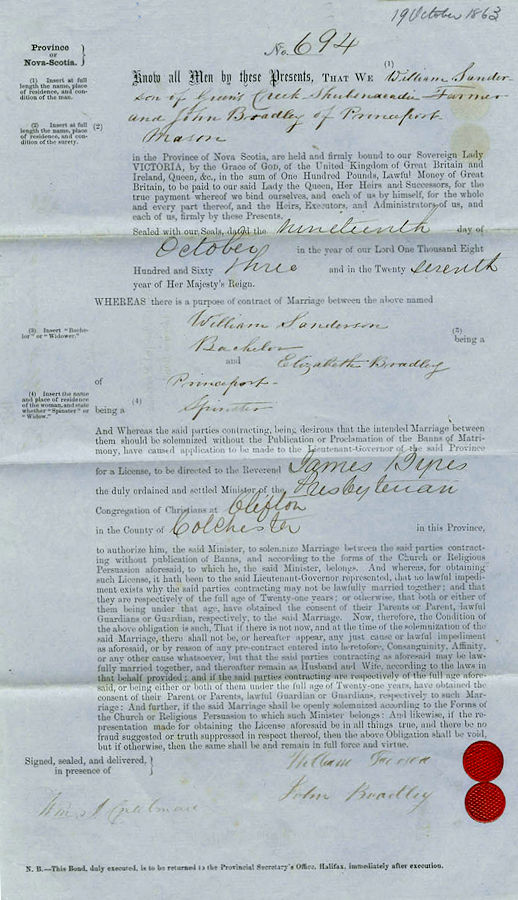 19 October 1863
Province
OF
Nova-Scotia.
No. 694
(1) Insert at full
length the name, place
of residence, and con-
dition of the man.
(1)
Know all Men by these Presents, THAT WE William Sander-
son of Green Creek Shubenacadie Farmer
(2) Insert at full
length the name, place
of residence, and con-
dition of the surety.
(2)
and John Bradley of Princeport
Mason
in the Province of Nova Scotia, are held and firmly bound to our Sovereign Lady
VICTORIA, by the Grace of GOD, of the United Kingdom of Great Britain and
Ireland, Queen, &c., in the sum of One Hundred Pounds, Lawful Money of Great
Britain, to be paid to our said Lady the Queen, Her Heirs and Successors, for the
true payment whereof we bind ourselves, and each of us by himself, for the whole
and every part thereof, and the Heirs, Executors, and Administrators of us, and
each of us, firmly by these Presents.
Sealed with our Seals, dated the Nineteenth day of
October in the year of our Lord One Thousand Eight
Hundred and Sixty three and in the Twenty seventh
year of Her Majesty's Reign.
WHEREAS there is a purpose of contract of Marriage between the above named
William Sanderson
(3) Insert "Bache-
lor" or "Widower."
(3)
being a
Bachelor
and Elizabeth Bradley
of Princeport
(4) Insert the name
and place of residence
of the woman, and state
whether "Spinster" or
"Widow."
(4)
being a Spinster
And Whereas the said parties contracting, being desirous that the intended Marriage between
them should be solemnized without the Publication or Proclamation of the Banns of Matri-
mony, have caused application to be made to the Lieutenant-Governor of the said Province
for a License, to be directed to the Reverend James Byres
the duly ordained and settled Minister of the Presbyterian
Congregation of Christians at Clifton
in the County of Colchester in this Province,
to authorize him, the said Minister, to solemnize Marriage between the said parties contract-
ing without publication of Banns, and according to the forms of the Church or Religious
Persuasion aforesaid, to which he, the said Minister, belongs. And whereas, for obtaining
such License, it hath been to the said Lieutenant-Governor represented, that no lawful impedi-
ment exists why the said parties contracting may not be lawfully married together; and that
they are respectively of the full age of Twenty-one years; or otherwise, that both or either of
them being under that age, have obtained the consent of their Parents or Parent, lawful
Guardians or Guardian, respectively, to the said Marriage. Now, therefore, the Condition of
the above obligation is such, That if there is not now, and at the time of the solemnization of the
said Marriage, there shall not be, or hereafter appear, any just cause or lawful impediment
as aforesaid, or by reason of any pre-contract entered into heretofore, Consanguinity, Affinity,
or any other cause whatsoever, but that the said parties contracting as aforesaid may be law-
fully married together, and thereafter remain as Husband and Wife, according to the laws in
that behalf provided; and if the said parties contracting are respectively of the full age afore-
said, or being either or both of them under the full age of Twenty-one years, have obtained the
consent of their Parent or Parents, lawful Guardian or Guardians, respectively to such Mar-
riage: And further, if the said Marriage shall be openly solemnized according to the Forms
of the Church or Religious Persuasion to which such Minister belongs: And likewise, if the re-
presentation made for obtaining the License aforesaid be in all things true, and there be no
fraud suggested or truth suppressed in respect thereof, then the above Obligation shall be void,
but if otherwise, then the same shall be and remain in full force and virtue.
Signed, sealed, and delivered,
in presence of
William
John Bradley
N. B.—This Bond, duly executed, is to be returned to the Provincial Secretary's Office, Halifax, immediately after execution.